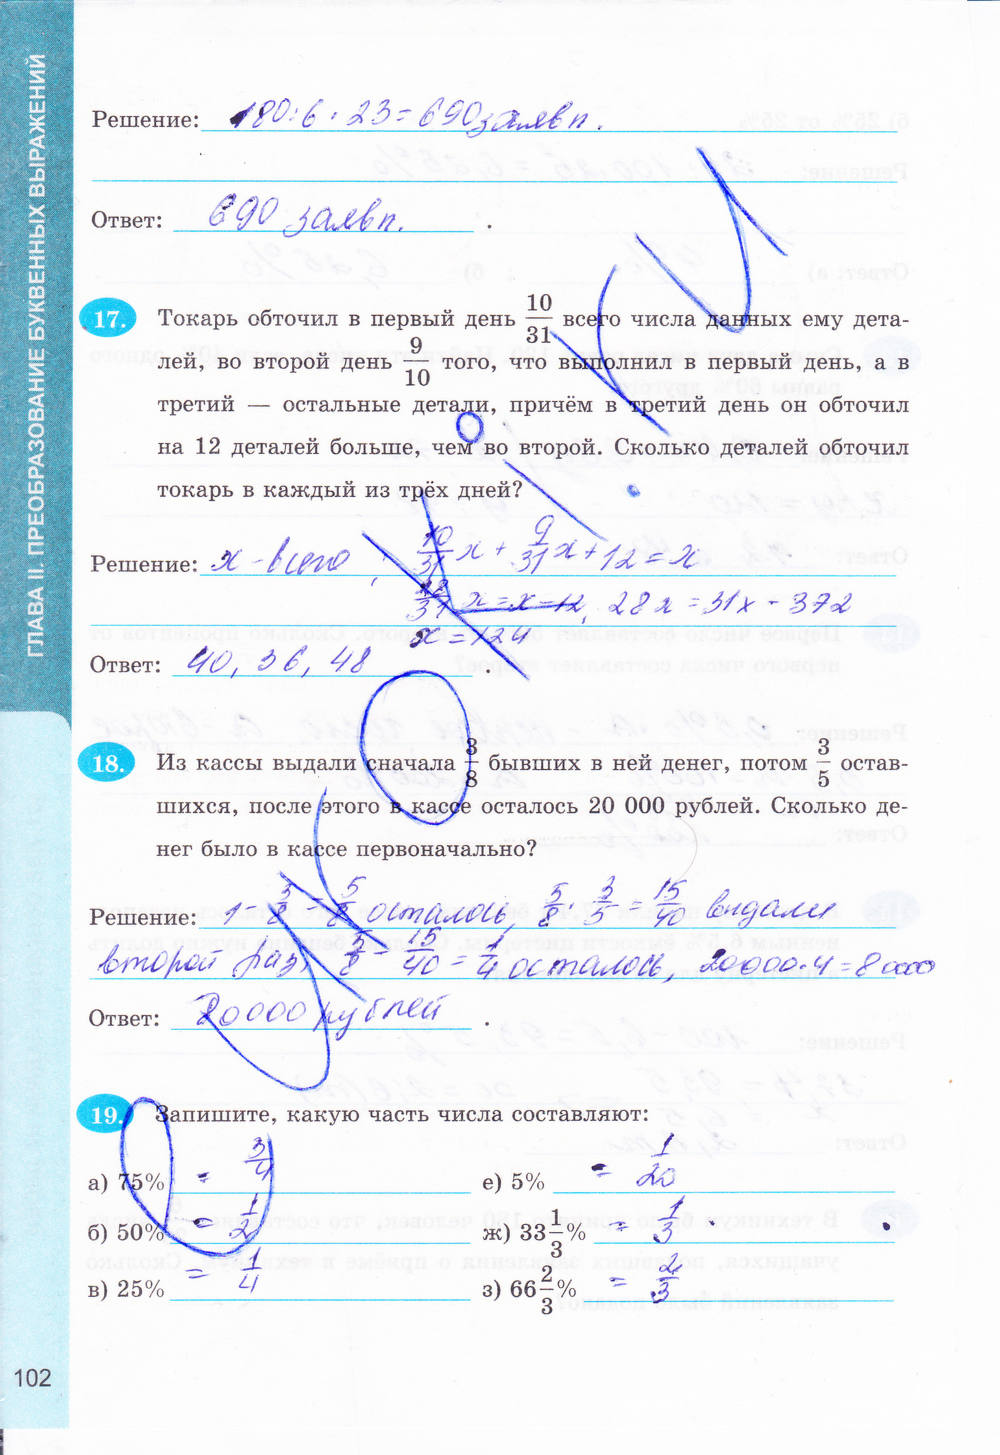 ГЛАВА II. ПРЕОБРАЗОВАНИЕ БУКВЕННЫХ ВЫРАЖЕНИЙ
Решение: 180:6·23=690 заявл.
Ответ: 690 заявл.
17. Токарь обточил в первый день 10/31 всего числа данных ему дета-
лей, во второй день 9/10 того, что выполнил в первый день, а в
третий — остальные детали, причём в третий день он обточил
на 12 деталей больше, чем во второй. Сколько деталей обточил
токарь в каждый из трёх дней?
Решение: x - всего ; 10/31 x + 9/31 x + 12 = x
28/31 x = x - 12, 28x = 31x - 372
x = 124
Ответ: 40, 36, 48
18. Из кассы выдали сначала 3/8 бывших в ней денег, потом 3/5 остав-
шихся, после этого в кассе осталось 20 000 рублей. Сколько де-
нег было в кассе первоначально?
Решение: 1 - 3/8 = 5/8 осталось 5/8 · 3/5 = 15/40 выдали
второй раз, 5/8 - 15/40 = 1/4 осталось, 20000·4=80000
Ответ: 80000 рублей
19. Запишите, какую часть числа составляют:
а) 75% = 3/4
е) 5% = 1/20
б) 50% = 1/2
ж) 33 1/3 % = 1/3
в) 25% = 1/4
з) 66 2/3 % = 2/3
102